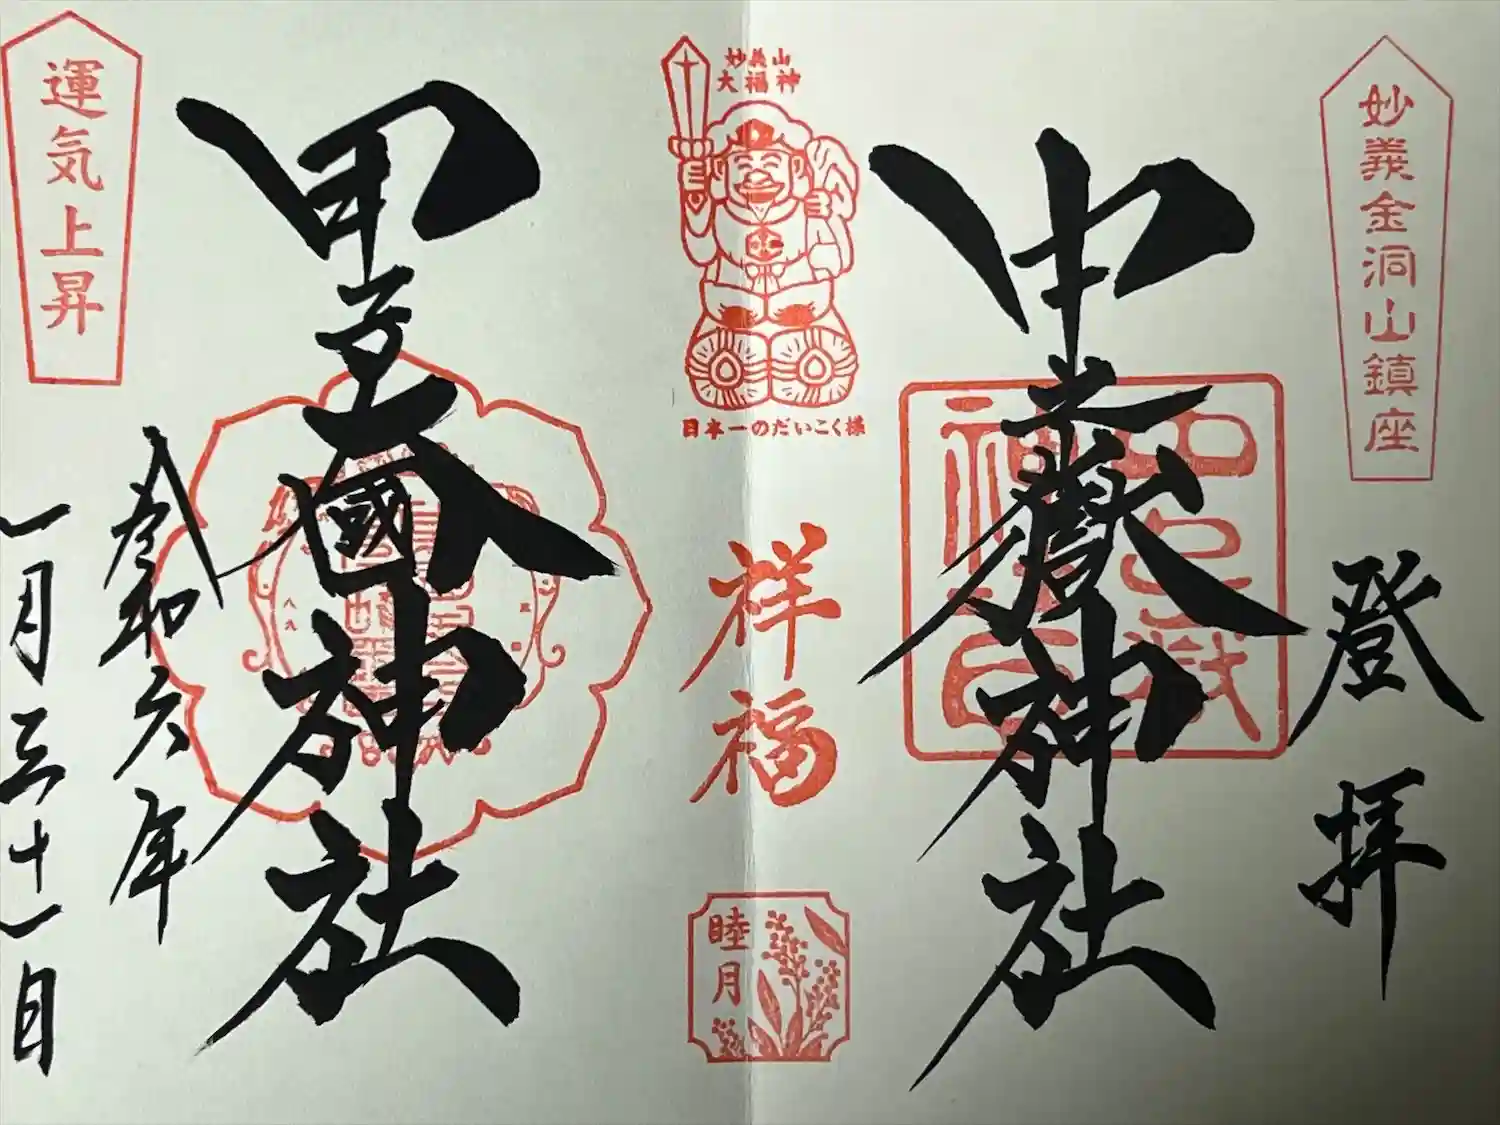 妙義金洞山鎮座
登拝
中之嶽神社
妙義山
大福神
日本一のだいこく様
祥福
睦月
甲子大國神社
運気上昇
令和六年
一月三十一日